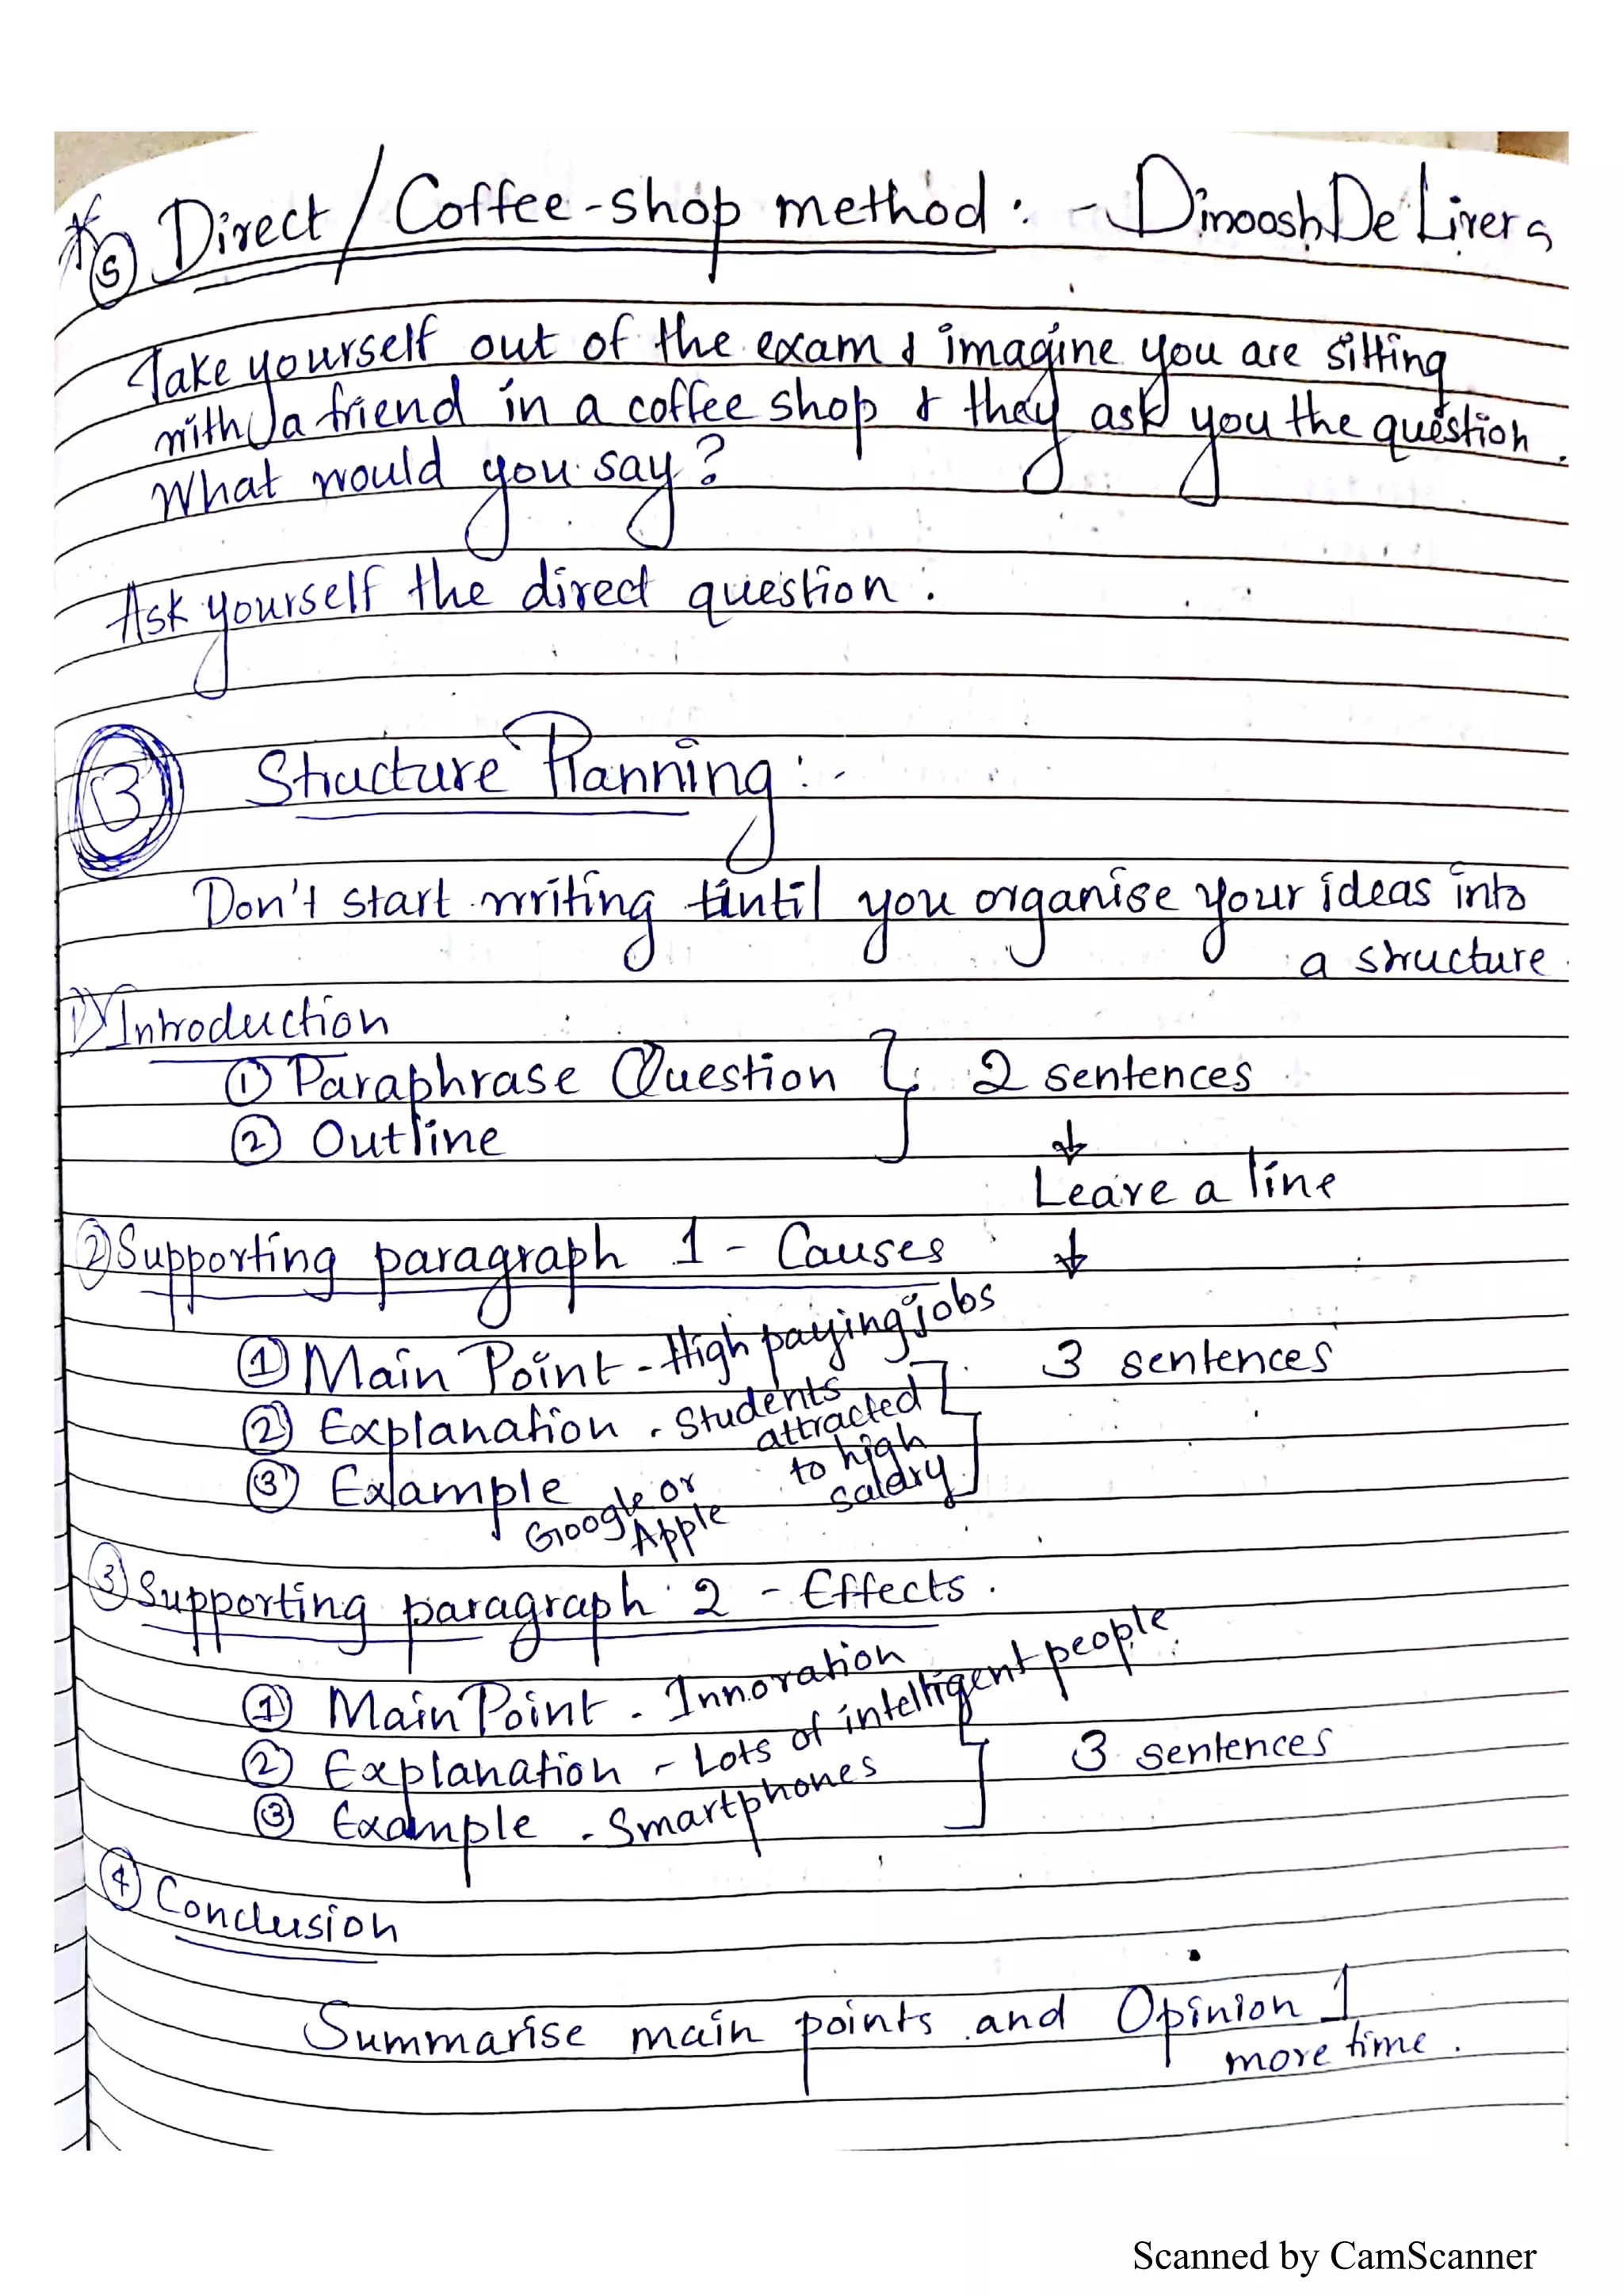 * ⑤ Direct/Coffee-shop method: - Dinoosh De Livera
Take yourself out of the exam & imagine you are sitting
with a friend in a coffee shop & they ask you the question.
What would you say?
Ask yourself the direct question.
③ Structure Planning:-
Don't start writing until you organise your ideas into
a structure.
1) Introduction
① Paraphrase Question } 2 sentences
② Outline
↓
Leave a line
② Supporting paragraph 1 - Causes ↓
① Main Point - High paying jobs
3 sentences
② Explanation . Students
attracted
to high
salary
③ Example Google or
Apple
③ Supporting paragraph 2 - Effects.
① Main Point . Innovation
② Explanation - Lots of intelligent people
3 sentences
③ Example - Smartphones
④ Conclusion
Summarise main points and Opinion 1
more time.
Scanned by CamScanner